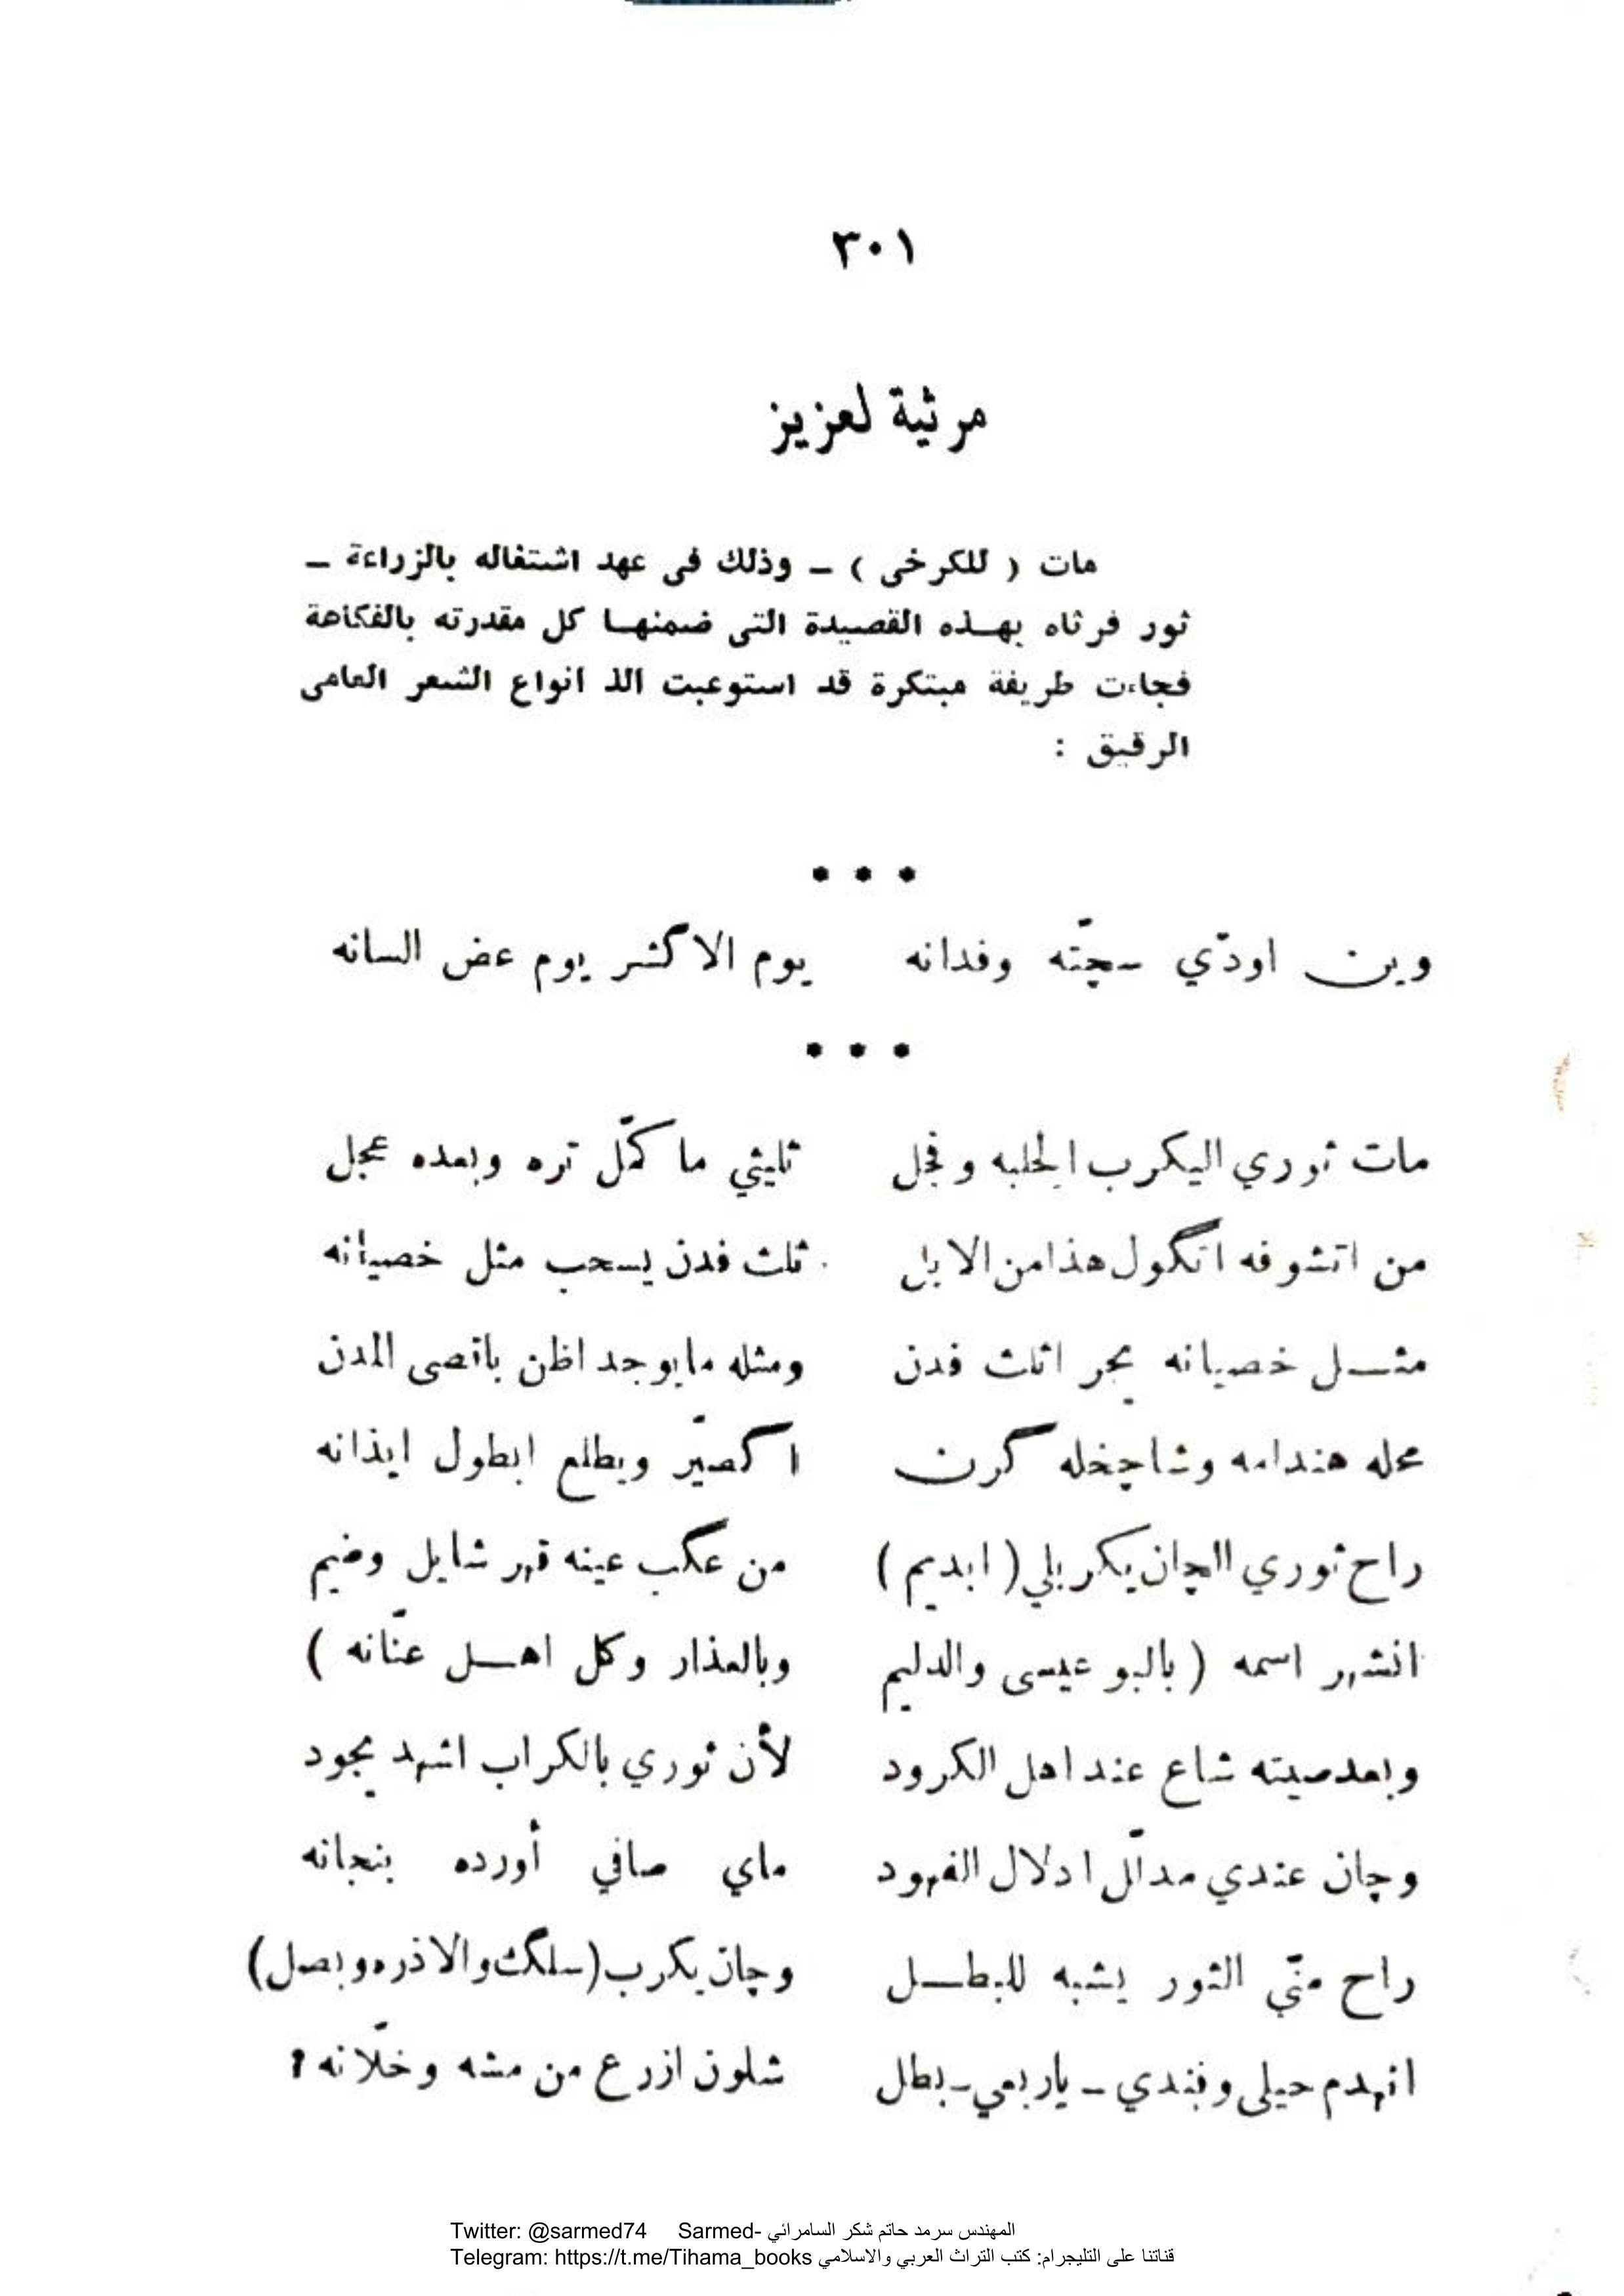 ٣٠١
مرثية لعزيز
مات ( للكرخى ) – وذلك فى عهد اشتغاله بالزراعة –
ثور فرثاه بهذه القصيدة التى ضمنها كل مقدرته بالفكاهة
فجاءت طريفة مبتكرة قد استوعبت الذ انواع الشعر العامى
الرقيق :
• • •
وين اودّي سچّته وفدانه يوم الاكشر يوم عض السانه
• • •
مات ثوري اليكرب الحلبه وفجل ثليثي ما كمّل تره وبعده عجل
من اتشوفه اتگول هذا من الابل ثلث فدن يسحب مثل خصيانه
مثل خصيانه يجر اثلث فدن ومثله مايوجد اظن باقصى المدن
محله هندامه وشاچخله گرن اگصيّر ويطلع ابطول ايذانه
راح ثوري الچان يكربلي ( ابديم ) من عگب عينه قهر شايل وضيم
انشهر اسمه ( بالبو عيسى والدليم وبالعذار وكل اهل عنّانه )
وبعد صيته شاع عند اهل الكرود لأن ثوري بالكراب اشهد يجود
وچان عندي مدلّل ادلال الفهود ماي صافي أورده بنجانه
راح منّي الثور يشبه للبطل وچان يكرب (سلگ والاذره وبصل)
انهدم حيلي وفندي – ياربعي – بطل شلون ازرع من مشه وخلّانه ؟
Twitter: @sarmed74 Sarmed- المهندس سرمد حاتم شكر السامرائي
Telegram: https://t.me/Tihama_books قناتنا على التليجرام: كتب التراث العربي والاسلامي